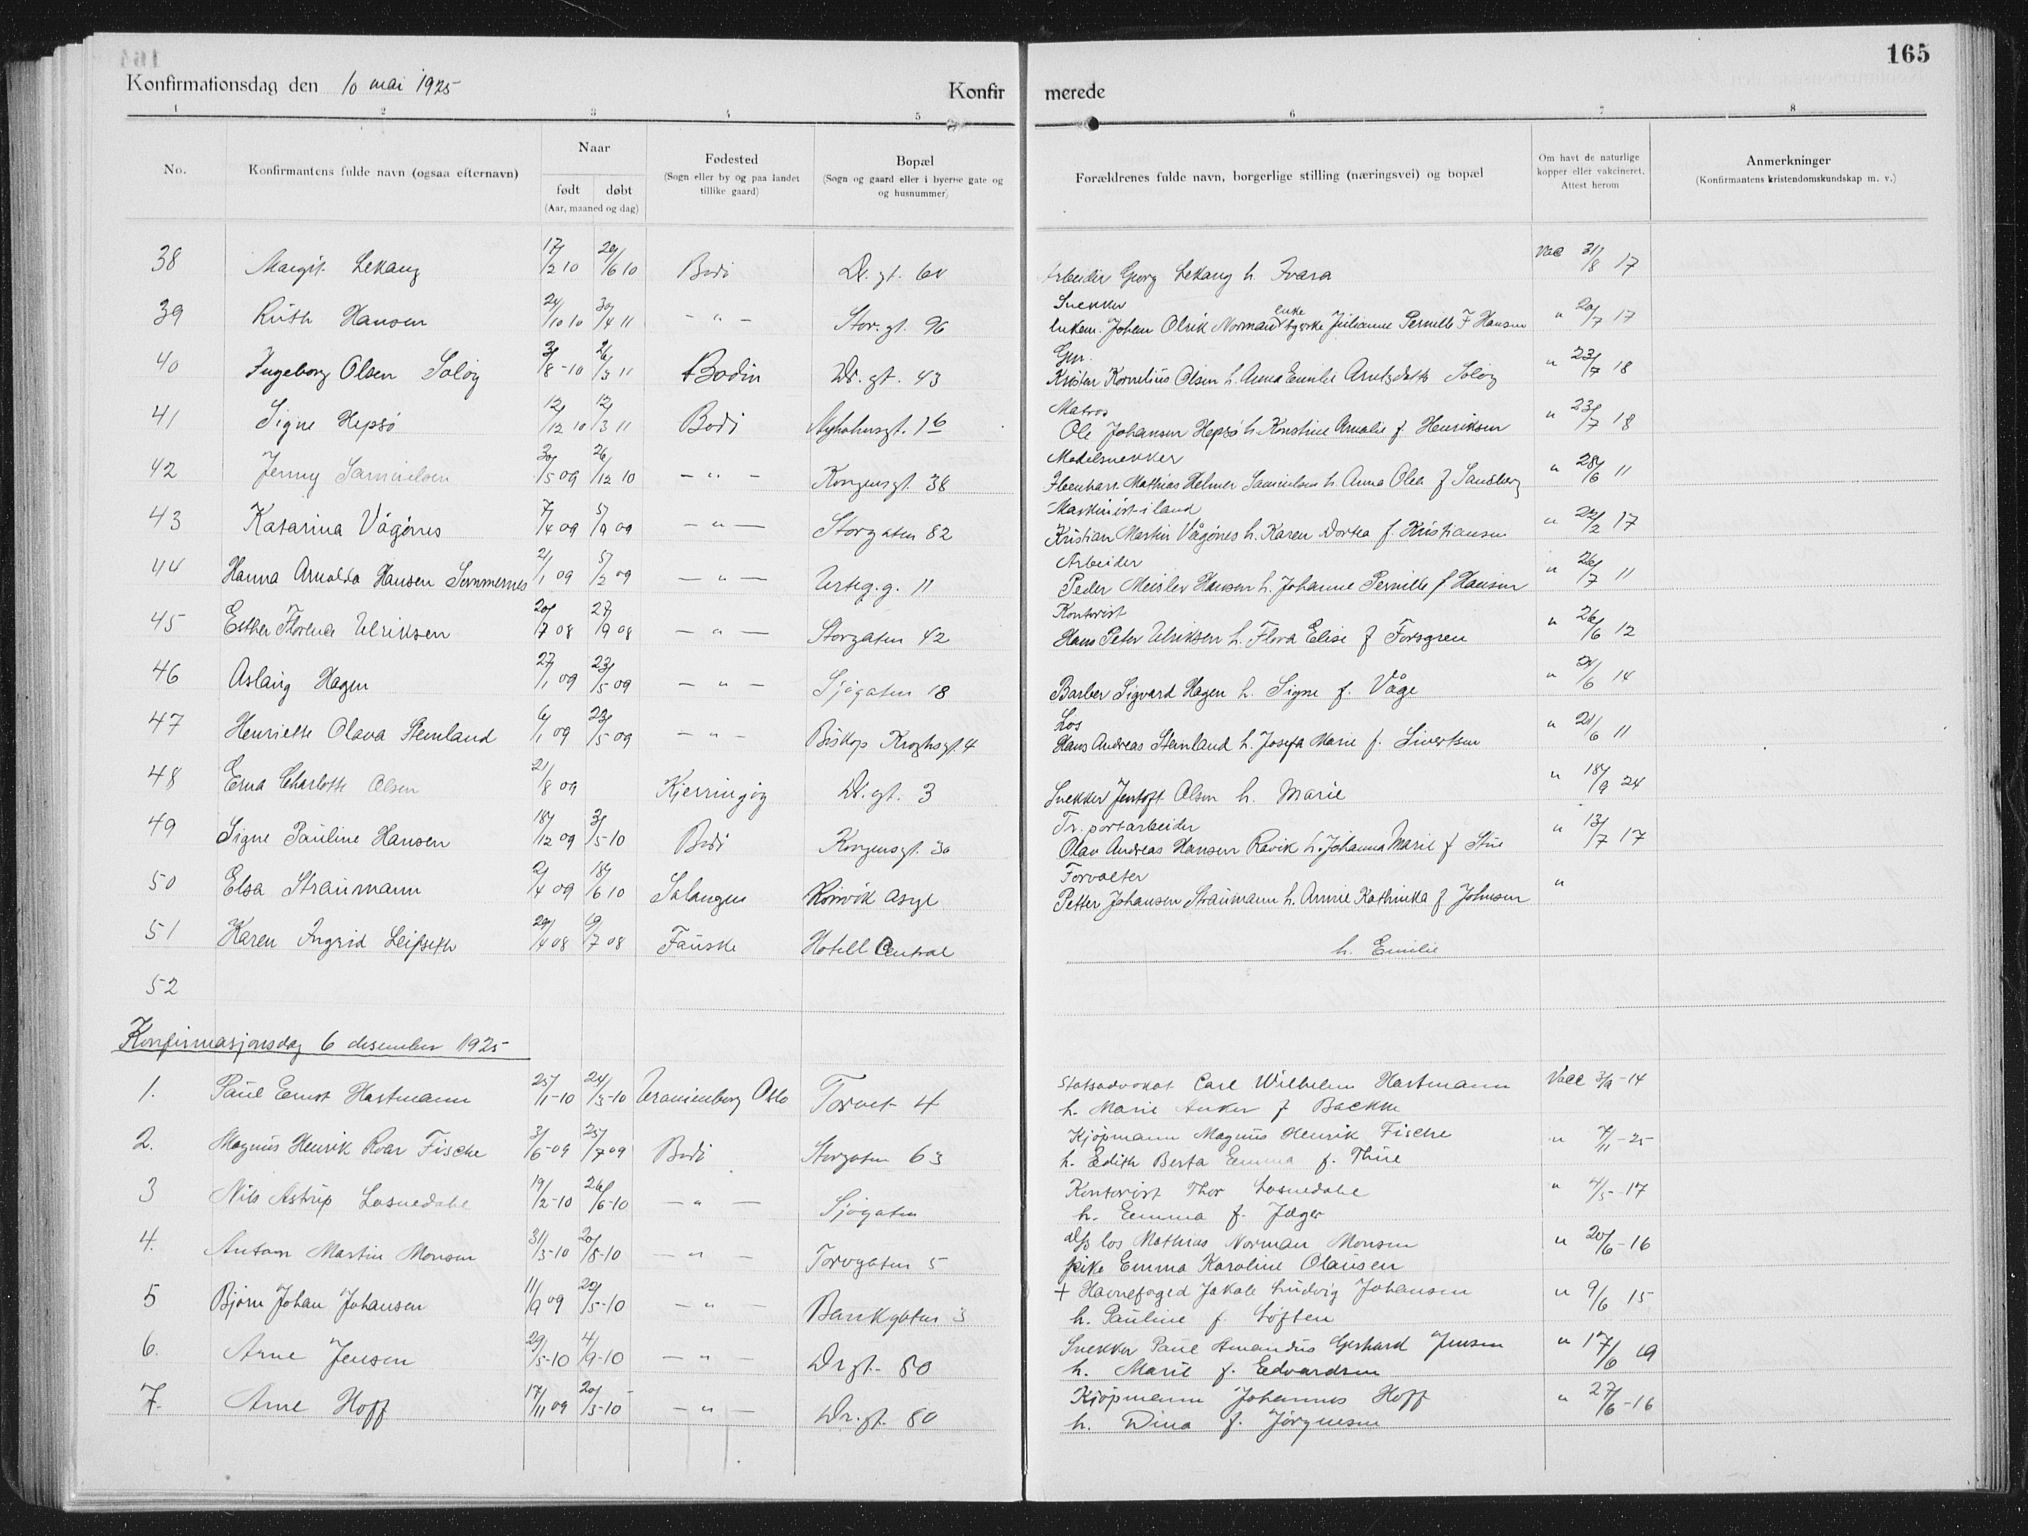 165
Konfirmationsdag den 10 mai 1925 Konfir merede
1 2 3 4 5 6 7 8
No. Konfirmantens fulde navn (ogsaa efternavn) Naar født døbt (Aar, maaned og dag) Fødested (Sogn eller by og paa landet tillike gaard) Bopæl (Sogn og gaard eller i byerne gate og og husnummer) Forældrenes fulde navn, borgerlige stilling (næringsvei) og bopæl Om havt de naturlige kopper eller vakcineret. Attest herom Anmerkninger (Konfirmantens kristendomskundskap m. v.)
38 Margit Lekang 17/2 10 29/6 10 Bodø Dr. gt. 60 Arbeider Georg Lekang h. Ivara Vac 31/8 17
39 Ruth Hansen 24/10 10 30/4 11 — " — Stor. gt. 96 Snekker
Johan Olrik Norman enke Julianne Pernille F Hansen " 20/7 17
40 Ingeborg Olsen Soløy 3/8 - 10 26/3 11 Bodin Dr. gt. 43 Gm.
Kristen Kornelius Olsen h. Anna Emilie Arntsdatter Soløy " 23/7 18
41 Signe Hepsø 12/12 10 12/3 11 Bodø Nyholmsgt. 16 Matros
Ole Johansen Hepsø h. Konstine Amalie f. Henriksen " 23/7 18
42 Jenny Samuelsen 30/5 09 26/12 10 — " — Kongensgt. 38 Mødelsnekker
Mathias Helmer Samuelsen h. Anna Olea f Sandberg " 28/6 11
43 Katarina Vågønes 7/4 09 5/9 09 — " — Storgaten 82 Maskinist i land
Kristian Martin Vågønes h. Karen Dortea f. Kristiansen " 22/2 17
44 Hanna Arnolda Hansen Sommernes 2/1 09 5/2 09 — " — Urteg.g. 11 Arbeider
Peder Meisler Hansen h. Johanne Pernille f Hansen " 26/7 11
45 Esther Florence Ulriksen 20/7 08 27/9 08 — " — Storgaten 42 Kontorist
Hans Peter Ulriksen h. Flora Elise f Forsgren " 26/6 12
46 Aslaug Hagen 27/1 09 23/5 09 — " — Sjøgaten 18 Barber Sigvard Hagen h. Signe f. Våge " 21/6 14
47 Henriette Olava Steinland 6/1 09 23/5 09 — " — Biskop Kroghsgt. 4 Los
Hans Andreas Steinland h. Josefa Marie f. Sivertsen " 21/6 11
48 Erna Charlotte Olsen 21/8 09 Kjerringøy Dr. gt. 3 Snekker Jentoft Olsen h. Marie " 18/9 24
49 Signe Pauline Hansen 18/12 09 3/5 - 10 Bodø Kongensgt. 30 Tr.portarbeider
Olav Andreas Hansen Ravik h. Johanna Marie f Stue " 13/7 17
50 Elsa Straumann 2/4 09 18/6 10 Salangen Rønvik asyl Forvalter
Petter Johansen Straumann h. Annie Kathinka f Johnsen "
51 Karen Ingrid Leifseth 29/4 08 6/7 08 Fauske Hotell Central h. Emilie
52
Konfirmasjonsdag 6 desember 1925
1. Paul Ernst Hartmann 25/1 - 10 24/3 - 10 Uranienborg Oslo Torvet 4 Statsadvokat Carl Wilhelm Hartmann Vacc 3/9 - 14
h. Marie Anker f Backke
2. Magnus Henrik Roar Fische 3/6 - 09 25/7 09 Bodø Storgaten 63 Kjøpmann Magnus Henrik Fische " 7/11 - 25
h. Edith Berta Emma f. Thue
3 Nils Astrup Losnedahl 19/2 - 10 26/6 - 10 — " — Sjøgaten Kontorist Thor Losnedahl " 4/5 - 17
h. Emma f. Jæger
4. Antom Martin Monsen 31/3 - 10 20/8 - 10 — " — Torvgaten 5 los Mathias Norman Monsen " 20/6 - 16
pike Emma Karoline Olausen
5 Bjørn Johan Johansen 11/9 09 20/5 - 10 — " — Bankgaten 3 + Havnefoged Jakob Ludvig Johansen " 9/6 15
h. Pauline f. Løften
6. Arne Jensen 29/5 - 10 4/9 - 10 — " — Dr gt. 80 Snekker Paul Amandus Gerhard Jensen " 17/6 19
h. Marie f. Edvardsen
7. Arne Hoff 17/11 09 20/3 - 10 — " — Dr. gt. 80 Kjøpmann Johannes Hoff " 27/6 - 16
h. Dina f. Jørgensen